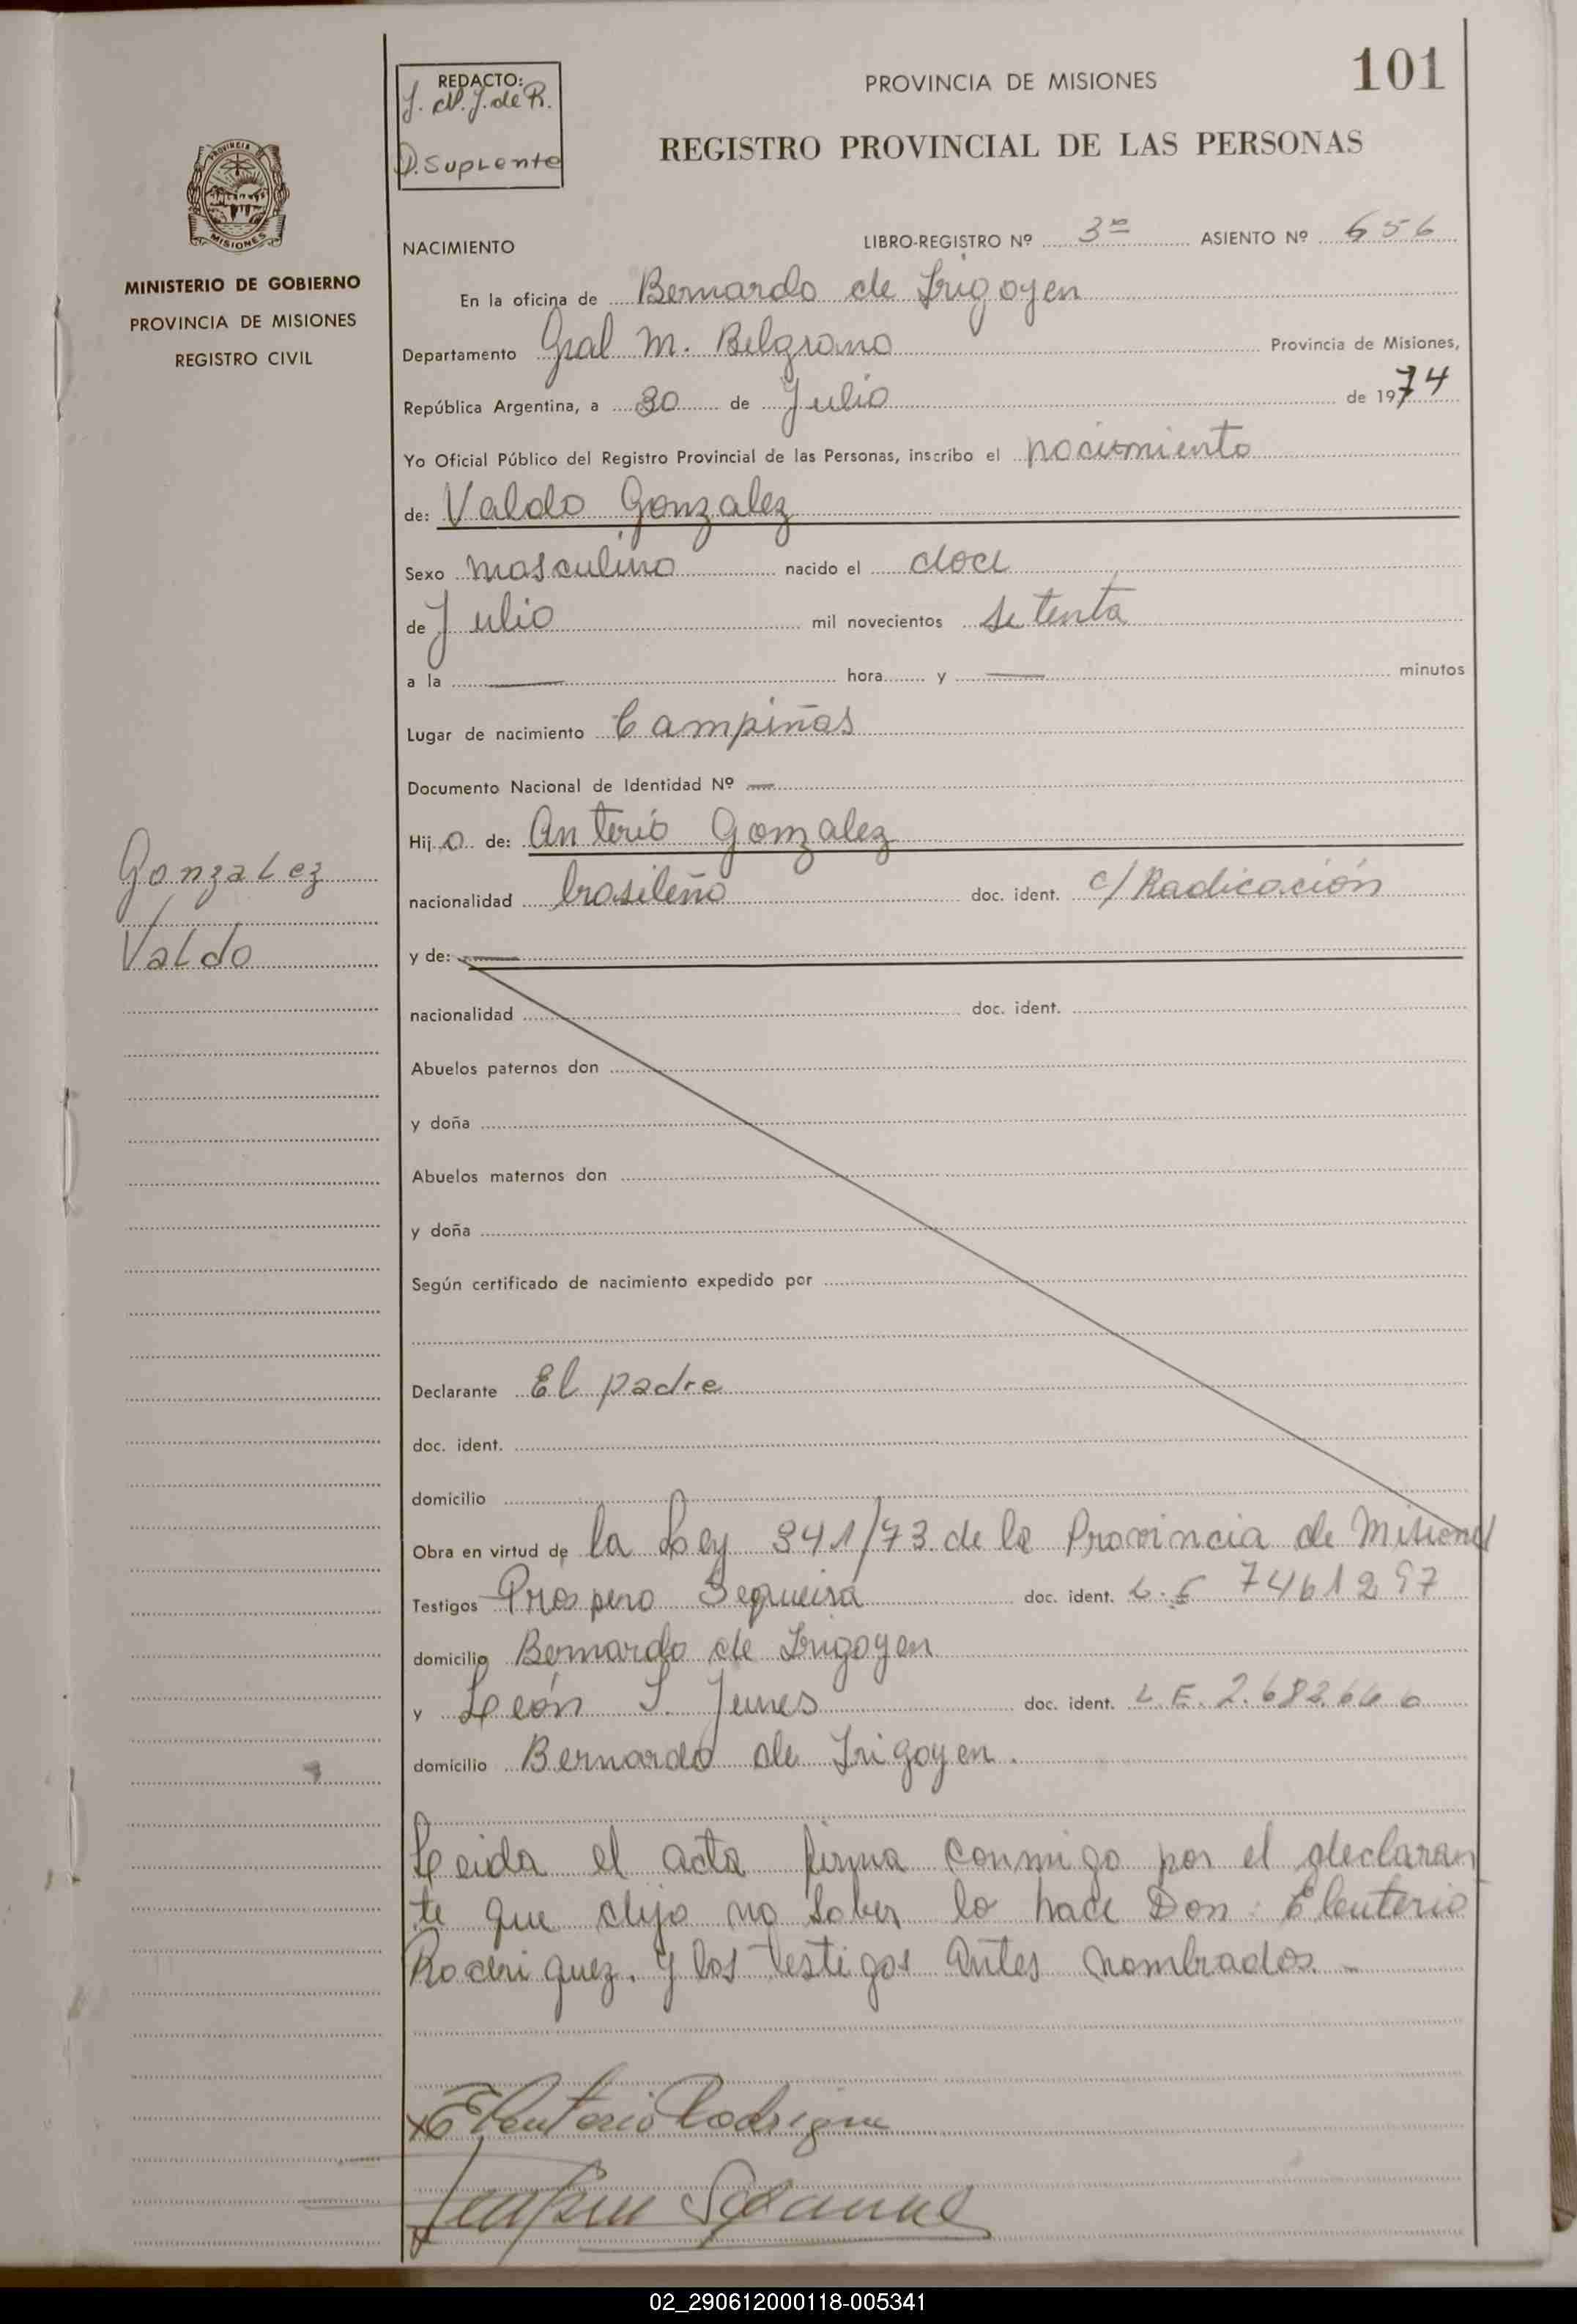 101
REDACTO:
J. M. J. de R.
O. Suplente
PROVINCIA DE MISIONES
REGISTRO PROVINCIAL DE LAS PERSONAS
PROVINCIA DE
MISIONES
MINISTERIO DE GOBIERNO
PROVINCIA DE MISIONES
REGISTRO CIVIL
NACIMIENTO LIBRO-REGISTRO Nº 3º ASIENTO Nº 656
En la oficina de Bernardo de Irigoyen
Departamento Gral M. Belgrano Provincia de Misiones,
República Argentina, a 30 de Julio de 1974
Yo Oficial Público del Registro Provincial de las Personas, inscribo el nacimiento
de: Valdo Gonzalez
Sexo masculino nacido el doce
de Julio mil novecientos setenta
a la — hora y — minutos
Lugar de nacimiento Campiñas
Documento Nacional de Identidad Nº —
Hijo de: Anterio Gonzalez
Gonzalez
nacionalidad brasileño doc. ident. c/ Radicación
Valdo
y de: —
nacionalidad doc. ident.
Abuelos paternos don
y doña
Abuelos maternos don
y doña
Según certificado de nacimiento expedido por
Declarante El padre
doc. ident.
domicilio
Obra en virtud de la Ley 341/73 de la Provincia de Misiones
Testigos Prospero Sequeira doc. ident. L.E 7461297
domicilio Bernardo de Irigoyen
y León S. doc. ident. L.E. 2.682.666
domicilio Bernardo de Irigoyen.
Leida el acta firma conmigo por el declaran
te que dijo no saber lo hace Don: Eleuterio
Rodriguez. y los testigos antes nombrados. -
x Eleuterio Rodrigue
02_290612000118-005341